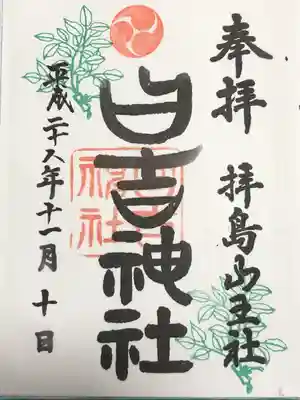 奉拝
拝島山王社
日吉神社
平成二十六年十一月十日